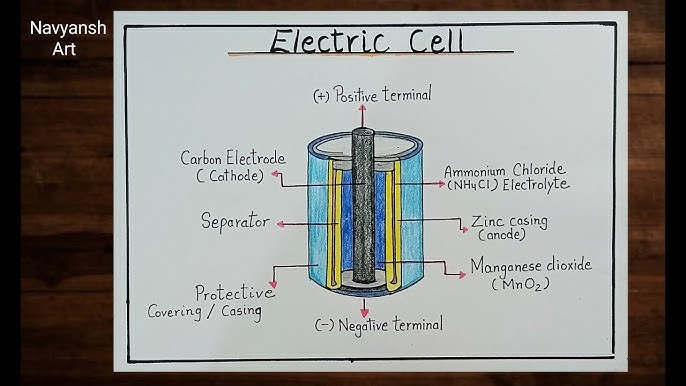 Navyansh
Art
Electric Cell
(+) Positive terminal
Carbon Electrode
(Cathode)
Ammonium Chloride
(NH4Cl) Electrolyte
Separator
Zinc casing
(anode)
Manganese dioxide
(MnO2)
Protective
Covering / Casing
(-) Negative terminal